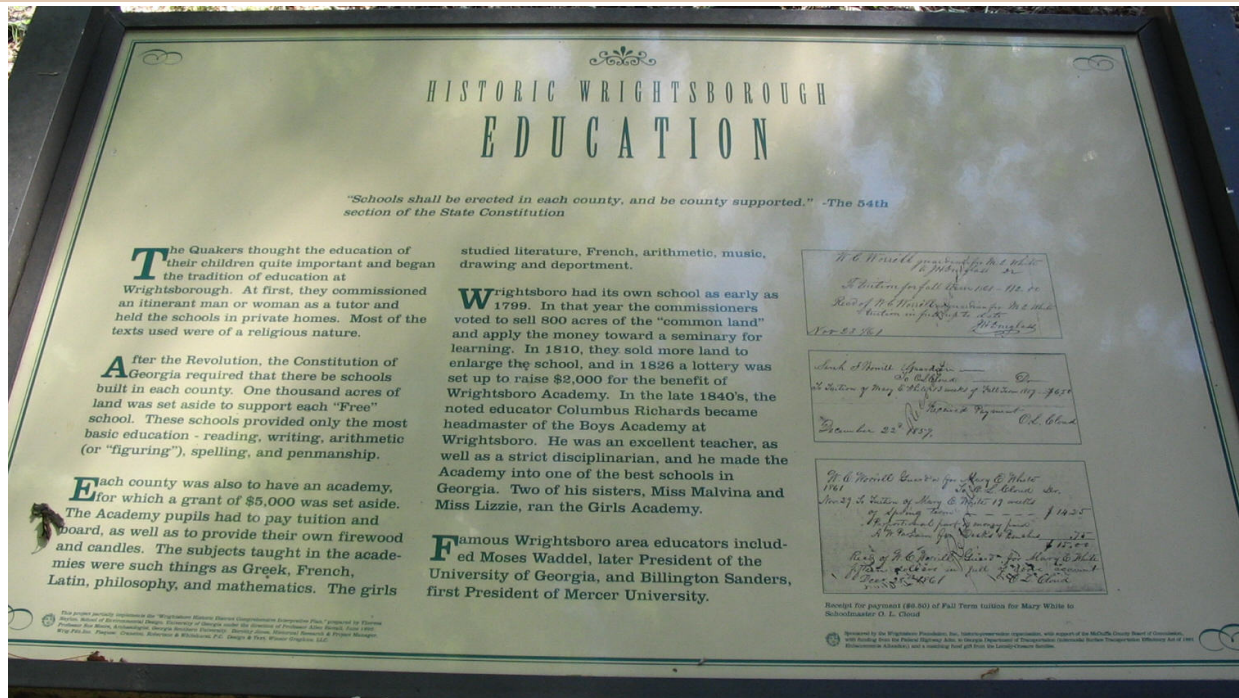 HISTORIC WRIGHTSBOROUGH
EDUCATION
"Schools shall be erected in each county, and be county supported." -The 54th
section of the State Constitution
The Quakers thought the education of
their children quite important and began
the tradition of education at
Wrightsborough. At first, they commissioned
an itinerant man or woman as a tutor and
held the schools in private homes. Most of the
texts used were of a religious nature.
After the Revolution, the Constitution of
Georgia required that there be schools
built in each county. One thousand acres of
land was set aside to support each "Free"
school. These schools provided only the most
basic education - reading, writing, arithmetic
(or "figuring"), spelling, and penmanship.
Each county was also to have an academy,
for which a grant of $5,000 was set aside.
The Academy pupils had to pay tuition and
board, as well as to provide their own firewood
and candles. The subjects taught in the acade-
mies were such things as Greek, French,
Latin, philosophy, and mathematics. The girls
studied literature, French, arithmetic, music,
drawing and deportment.
Wrightsboro had its own school as early as
1799. In that year the commissioners
voted to sell 800 acres of the "common land"
and apply the money toward a seminary for
learning. In 1810, they sold more land to
enlarge the school, and in 1826 a lottery was
set up to raise $2,000 for the benefit of
Wrightsboro Academy. In the late 1840's, the
noted educator Columbus Richards became
headmaster of the Boys Academy at
Wrightsboro. He was an excellent teacher, as
well as a strict disciplinarian, and he made the
Academy into one of the best schools in
Georgia. Two of his sisters, Miss Malvina and
Miss Lizzie, ran the Girls Academy.
Famous Wrightsboro area educators includ-
ed Moses Waddel, later President of the
University of Georgia, and Billington Sanders,
first President of Mercer University.
W. C. Worrill guardian for M. E. White
Nov 23 1861
O. L. Cloud
December 22d 1857.
W. C. Worrill Guard'n for Mary E White
1861
Nov. 27 To Tuition of Mary E White 19 weeks
of Spring Term $14.25
.75
$15.00
Receipt for payment ($6.50) of Fall Term tuition for Mary White to
Schoolmaster O. L. Cloud